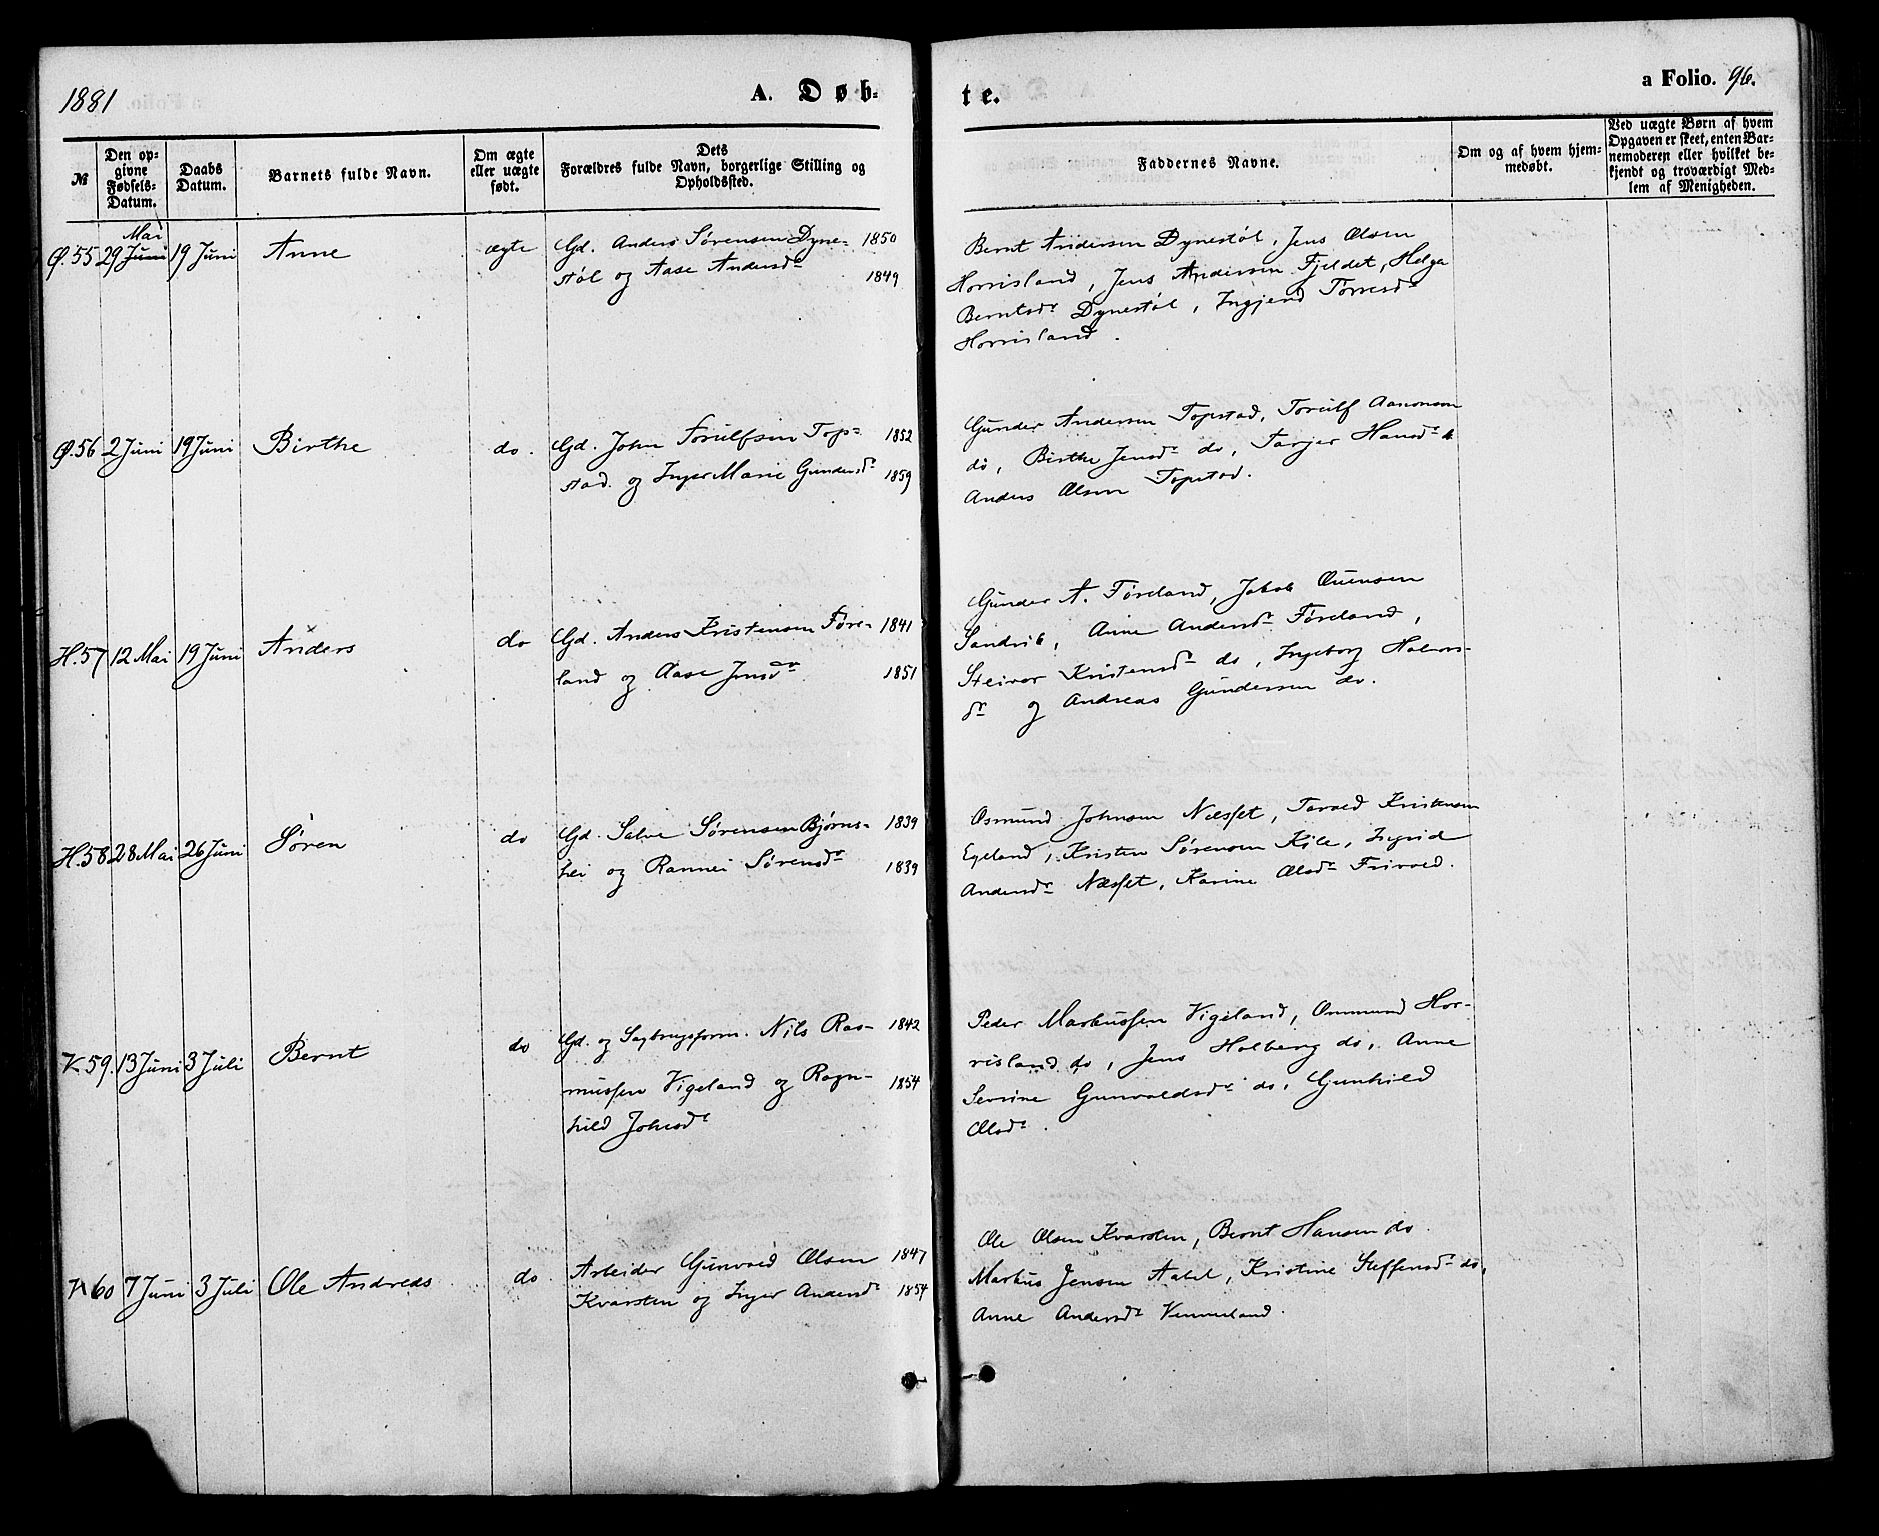 1881
A. Døb-
te.
a Folio. 96.
№
Den op-
givne
Fødsels-
Datum.
Daabs
Datum.
Barnets fulde Navn.
Om ægte
eller uægte
født.
Dets
Forældres fulde Navn, borgerlige Stilling og
Opholdssted.
Faddernes Navne.
Om og af hvem hjem-
medøbt.
Ved uægte Børn af hvem
Opgaven er skeet, enten Bar-
nemoderen eller hvilket be-
kjendt og troværdigt Med-
lem af Menigheden.
Ø. 55 29 Juni Mai 19 Juni Anne ægte
Gd. Anders Sørensen Dyne- 1850
støl og Aase Andersdr 1849
Bernt Andersen Dynestøl, Jens Olsen
Horrisland, Jens Andersen Fjeldet, Helga
Berntsdr Dynestøl, Ingjerd Torresdr
Horrisland.
Ø. 56 2 Juni 19 Juni Birthe do.
Gd. John Torulfsen Top- 1852
stad. og Inger Marie Gundersdr 1859
Gunder Andersen Topstad, Torulf Aanonsen
do, Birthe Jensdr do, Tarjer Hansdr
Anders Olsen Topstad.
H. 57 12 Mai 19 Juni Anders do
Gd. Anders Kristensen Føre- 1841
land og Aase Jensdr 1851
Gunder A. Føreland, Jakob
Sandvik, Anne Andersdr Føreland,
Steivor Kristensdr do, Ingeborg Halvors-
dr og Andreas Gundersen do.
H. 58 28 Mai 26 Juni Søren do
Gd. Salve Sørensen Bjørns- 1839
hei og Rannei Sørensdr 1839
Osmund Johnsen Næsset, Tarald Kristensen
Egeland, Kristen Sørensen Kile, Ingrid
Andersdr Næsset, Karine Olsdr Frivold.
K 59. 13 Juni 3 Juli Bernt do
Gd. og Sagbrugsform. Nils Ras- 1842
mussen Vigeland og Ragn- 1854
hild Johnsdr
Peder Markussen Vigeland, Ommund Hor-
risland do, Jens Holberg do, Anne
Sevrine Gunvaldsdr do, Gunhild
Olsdr.
K 60 7 Juni 3 Juli Ole Andreas do
Arbeider Gunvald Olsen 1847
Kvarsten og Inger Andersdr 1854
Ole Olsen Kvarsten, Bernt Hansen do
Markus Jensen Aabel, Kristine Steffensdr do,
Anne Andersdr Vennesland.